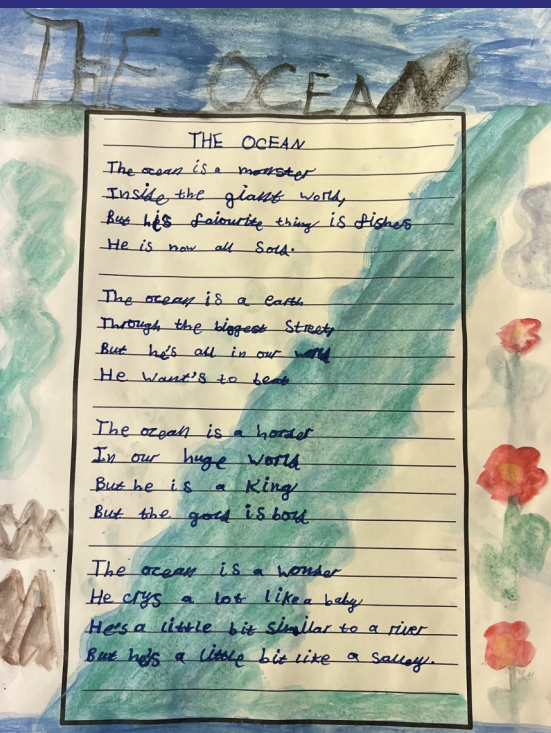 THE OCEAN
THE OCEAN
The ocean is a monster
Inside the giant world,
But his faiourite thing is fishes
He is now all Sold.
The ocean is a earth
Through the biggest Street,
But he's all in our world
He Want's to beat
The ocean is a horder
In our huge World
But he is a King
But the gold is bold
The ocean is a wonder
He crys a lot like a baby
He's a little bit similar to a river
But he's a little bit like a salley.